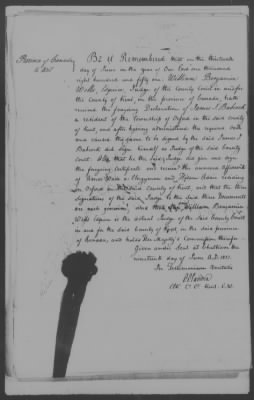 Province of Canada
to Wit
Be it Remembered that on the thirteenth
day of June in the year of Our Lord one thousand
eight hundred and fifty one. William Benjamin
Wells, Esquire, Judge of the County Court in and for
the County of Kent, in the province of Canada,
receive the foregoing Declaration of James I. Babcock
a resident of the Township of Orford in the said county
of Kent, and after having administered the required oath
and caused the same to be signed by the said James I.
Babcock did sign himself as Judge of the said County
Court. Also that he the said Judge did give and sign
the foregoing Certificate and receive the annexed Affidavits
of a Clergyman and residing
in Orford in the said County of Kent, and that the three
Signatures of the said Judge to the said three Documents
are each genuine, and that the William Benjamin
Wells Esquire is the actual Judge of the said County Court
in and for the said County of Kent, in the said province
of Canada, and holds Her Majesty's Commission therefor.
Given under Seal at Chatham the
nineteenth day of June A.D. 1851.
In Testimonium Veritatis
Clk. C. C. Kent. C.W.